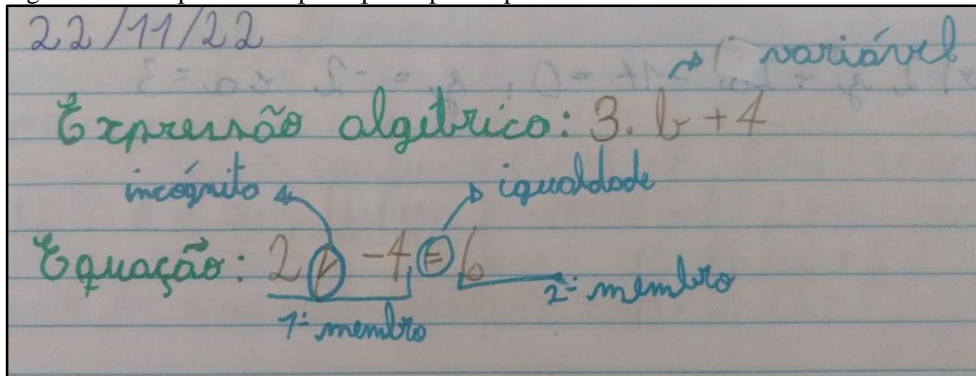 22/11/22
variável
Expressão algébrica: 3. b + 4
incógnita igualdade
Equação: 2 y - 4 = 6
1º membro 2º membro